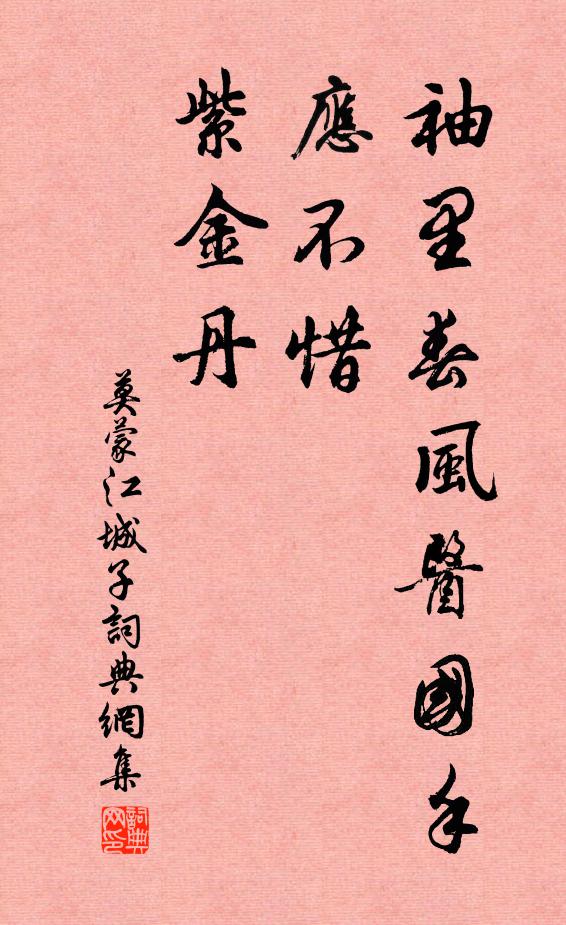 袖里春風醫國手
應不惜
紫金丹
莫蒙江城子詞典網集
詞典网印